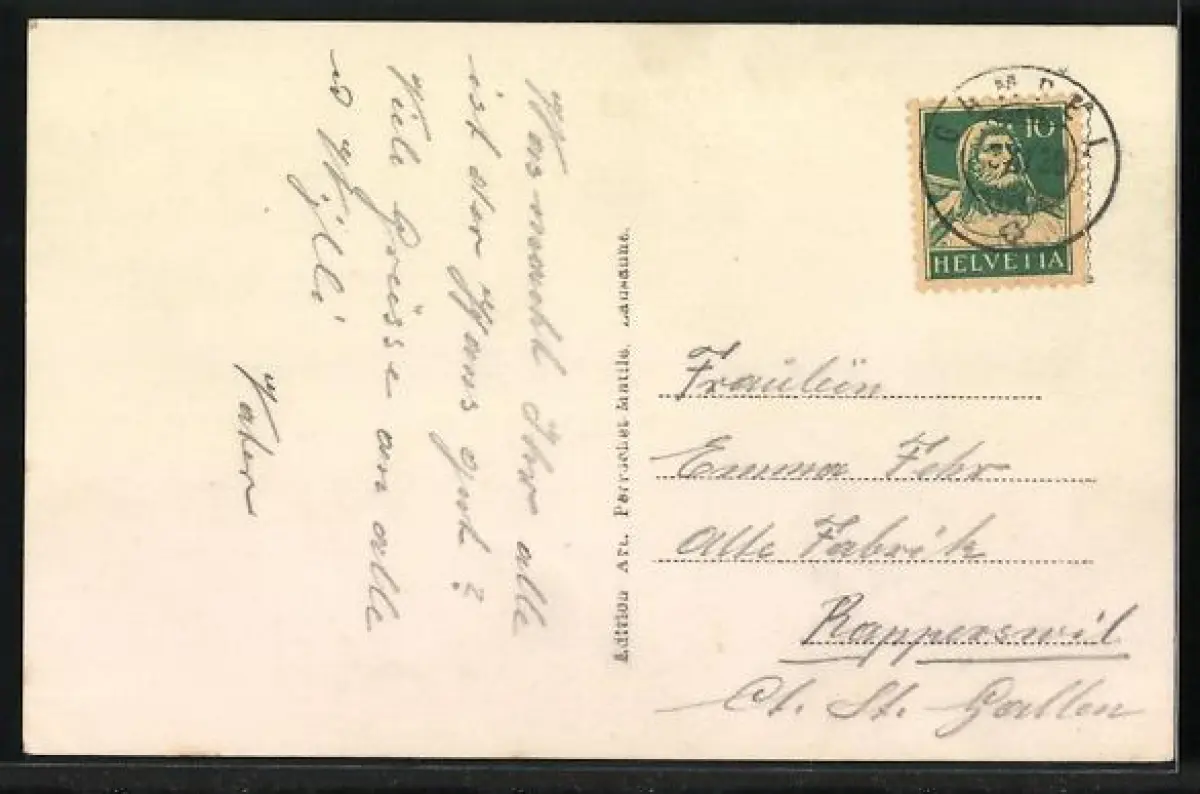 Was macht Ihr alle
ist der Hans gut?
Viele Grüsse an alle
Vater
Edition Art. Perrochet-Matile, Lausanne.
10
HELVETIA
Fräulein
Emma Fehr
Alte Fabrik
Rapperswil
Ct. St. Gallen